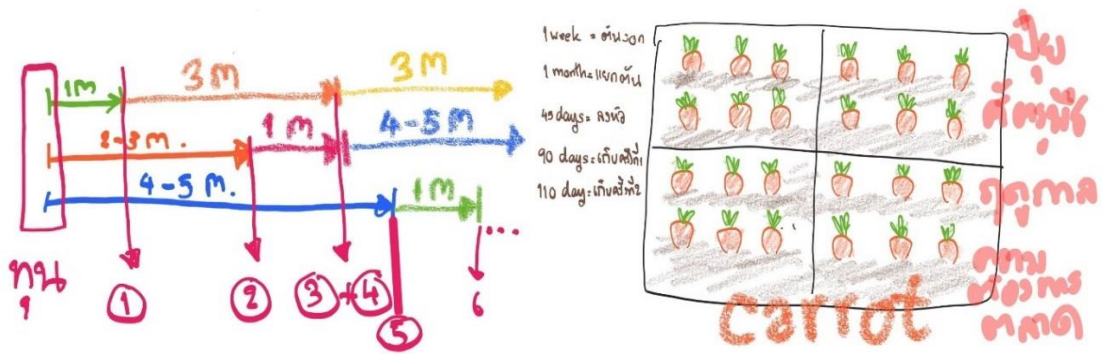 1M
3M
3M
2-3 M.
1M
4-5 M
4-5 M.
1M
...
ทุน
1
2
3+4
5
6
1 week = ต้นงอก
1 month = แยกต้น
45 days = ลงหัว
90 days = เก็บครั้งที่1
110 day = เก็บครั้งที่2
ปุ๋ย
ศัตรูพืช
ฤดูกาล
ความ
ต้องการ
ตลาด
carrot